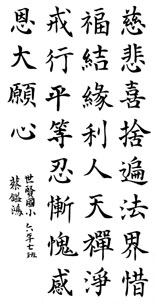 慈悲喜捨遍法界惜
福結緣利人天禪淨
戒行平等忍慚愧感
恩大願心
世賢國小六年七班